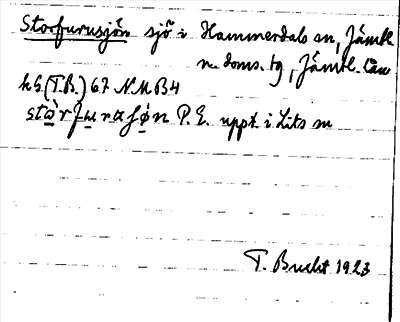 Storfurusjön sjö i Hammerdals sn, Jämtl.
n. doms. tg, Jämtl. län
hS. (T.B.) 67 N.M B4
stὼrfωraʃøn P.E. uppt. i Lits sn
T. Bucht 1923